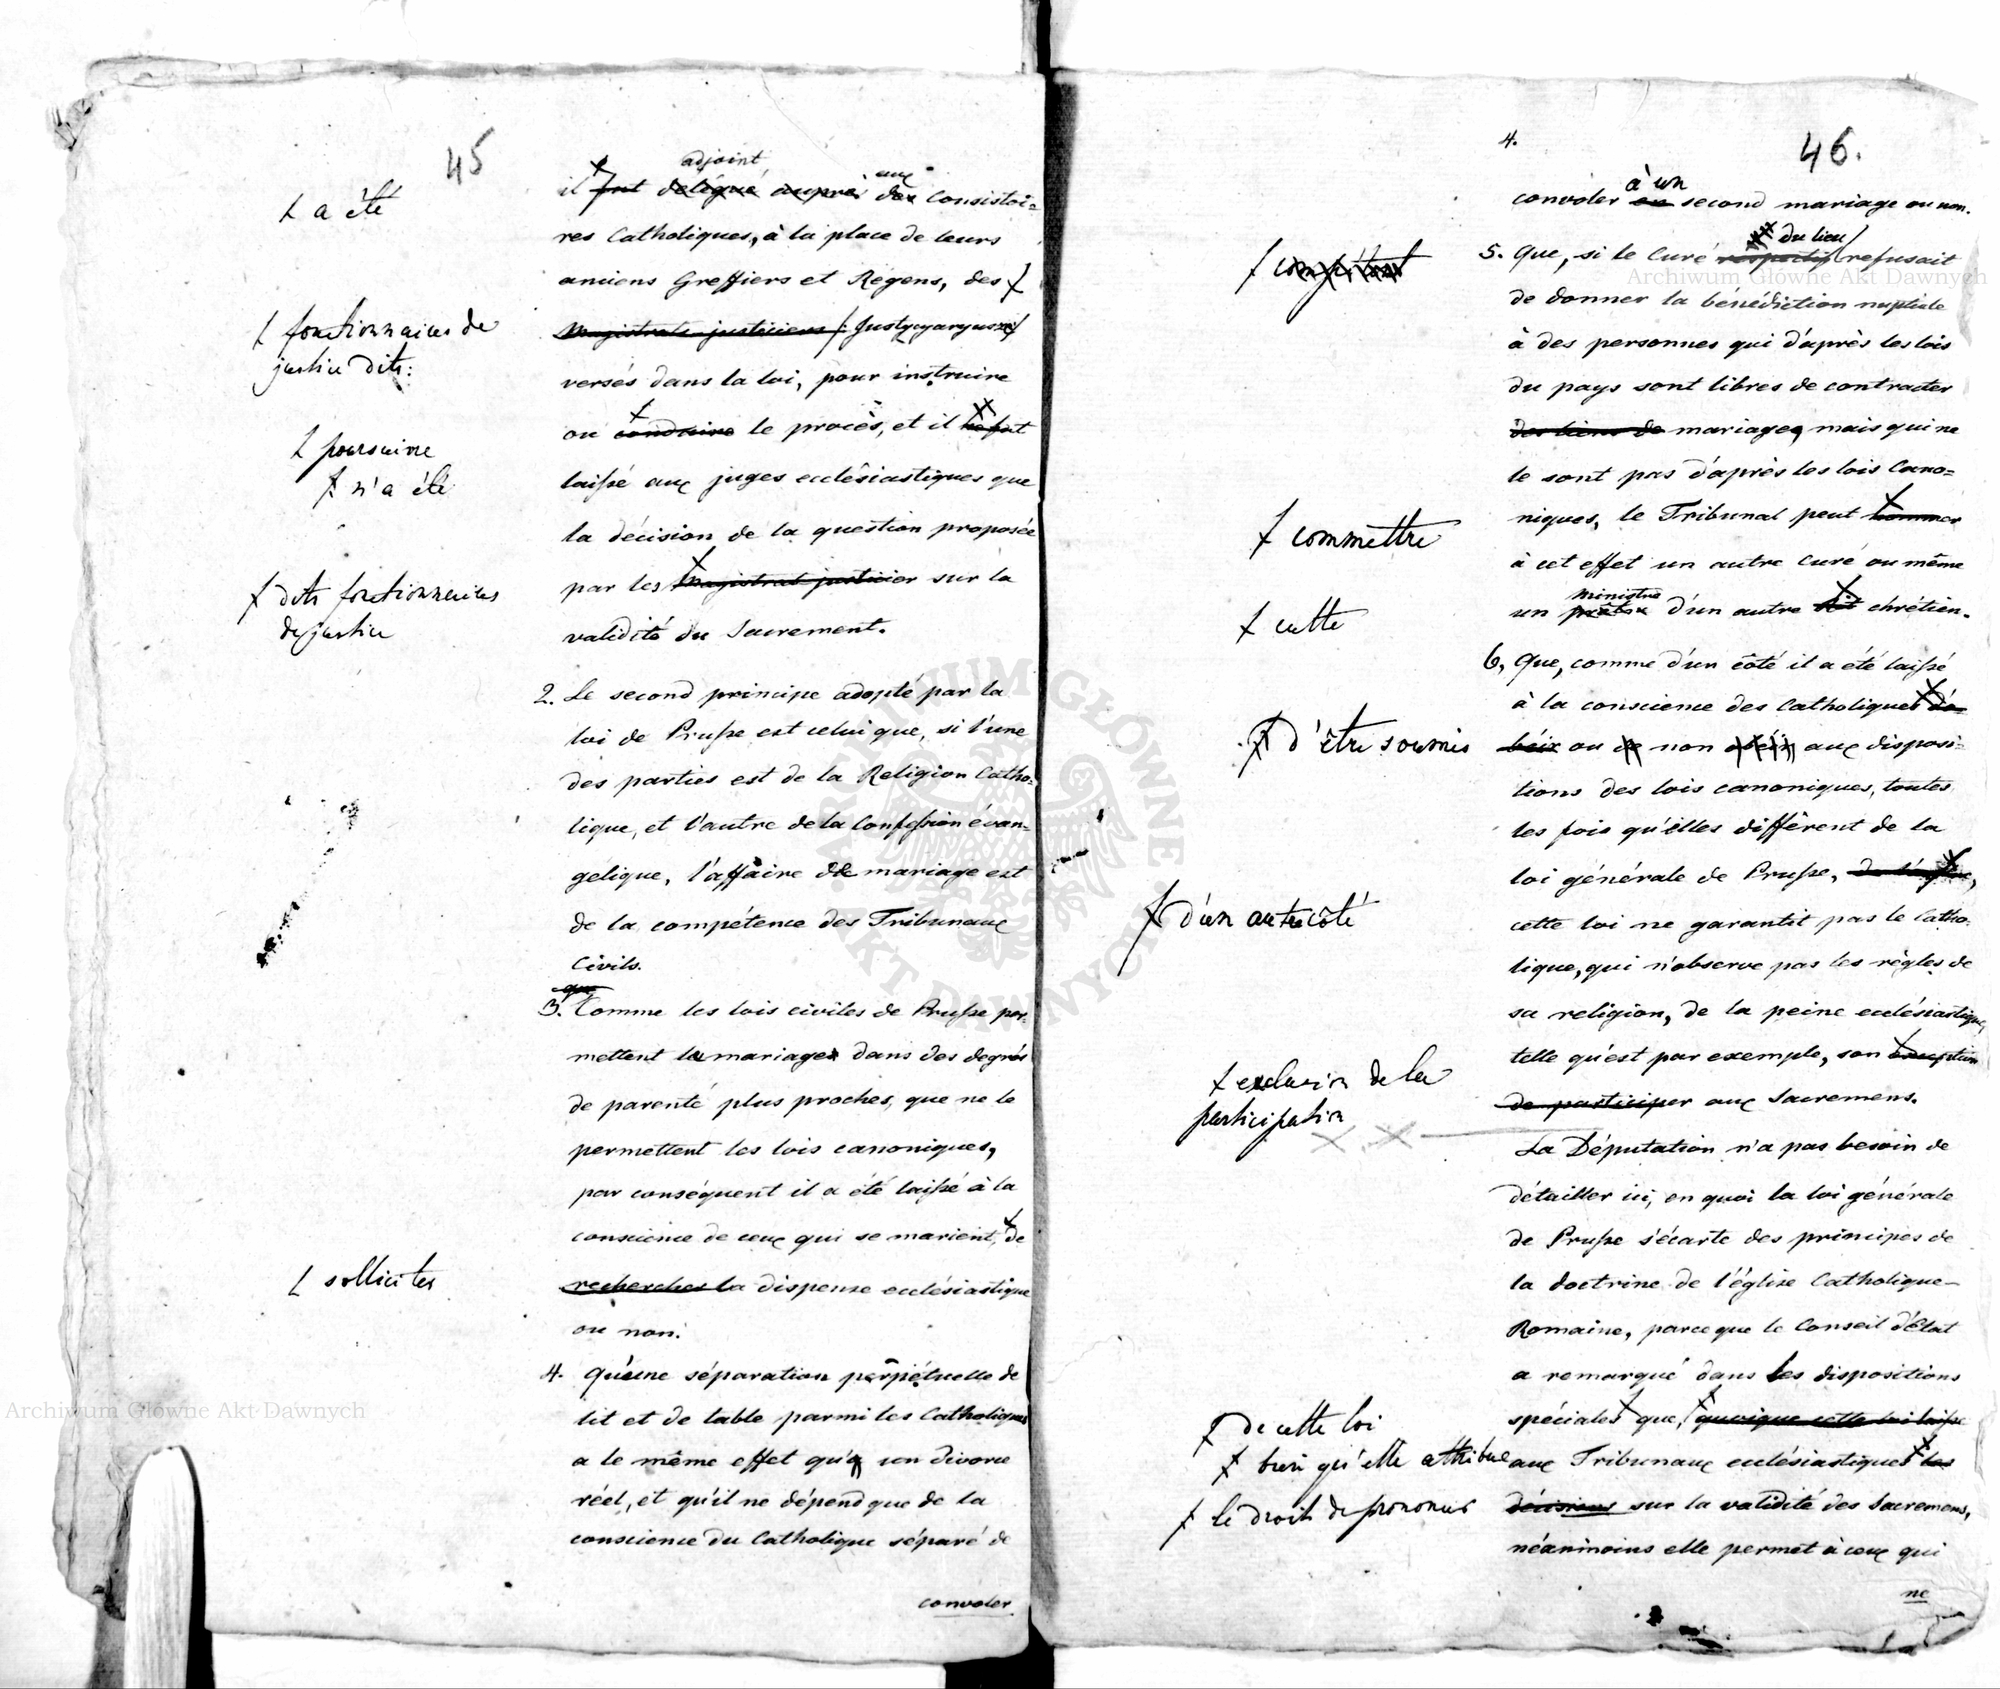 45
ⱡ a été
ⱡ fonctionnaires de
justice dits:
ⱡ poursuivre
ⱡ n'a été
ⱡ dits fonctionnaires
de justice
ⱡ solliciter
adjoint aux
il fut delégué auprès des Consistoi=
res Catholiques, à la place de leurs
anciens Greffiers et Régens, des
Magistrats justiciers / Justycyaryusze /
versés dans la loi, pour instruire
ou conduire le procès, et il ne fut
laissé aux juges ecclésiastiques que
la décision de la question proposée
par les magistrat justicier sur la
validité du Sacrement.
2. Le second principe adopté par la
loi de Prusse est celui que, si l'une
des parties est de la Religion Catho=
lique, et l'autre de la Confession évan=
gelique, l'affaire de mariage est
de la compétence des Tribunaux
Civils.
que
3. Comme les lois civiles de Prusse per=
mettent le mariages dans des degrés
de parenté plus proches, que ne le
permettent les lois canoniques,
par conséquent il a été laissé à la
conscience de ceux qui se marient, de
rechercher la dispense ecclésiastique
ou non.
4. Qu'une séparation perpétuelle de
lit et de table parmi les Catholiques
a le même effet qu'a un divorce
réel, et qu'il ne dépend que de la
conscience du Catholique séparé de
convoler
4.
46.
ⱡ compétent
ⱡ commettre
ⱡ culte
ⱡ d'être soumis
ⱡ d'un autre côté
ⱡ exclusion de la
participation
ⱡ de cette loi
ⱡ bien qu'elle attribue
ⱡ le droit de prononcer
à un
convoler en second mariage ou non.
du lieu /
5. Que, si le Curé respectif refusait
de donner la bénédiction nuptiale
à des personnes qui d'après les lois
du pays sont libres de contracter
des liens de mariage, mais qui ne
le sont pas d'après les lois Cano=
niques, le Tribunal peut nommer
à cet effet un autre Curé ou même
ministre
un prêtre d'un autre rit chrétien.
6. Que, comme d'un côté il a été laissé
à la conscience des Catholiques d'o=
béir ou de non obéir aux disposi=
tions des lois canoniques, toutes
les fois qu'elles diffèrent de la
loi générale de Prusse, de l'église,
cette loi ne garantit pas le Catho=
lique, qui n'observe pas les règles de
sa religion, de la peine ecclésiastique,
telle qu'est par exemple, son exception
de participer aux Sacremens.
La Députation n'a pas besoin de
détailler ici, en quoi la loi générale
de Prusse s'écarte des principes de
la doctrine de l'église Catholique-
Romaine, parceque le Conseil d'Etat
a remarqué dans les dispositions
spéciales que, quoique cette loi laisse
aux Tribunaux ecclésiastiques les
décisions sur la validité des Sacremens,
néanmoins elle permet à ceux qui
ne
Archiwum Główne Akt Dawnych
Archiwum Główne Akt Dawnych
ARCHIWUM GŁÓWNE AKT DAWNYCH